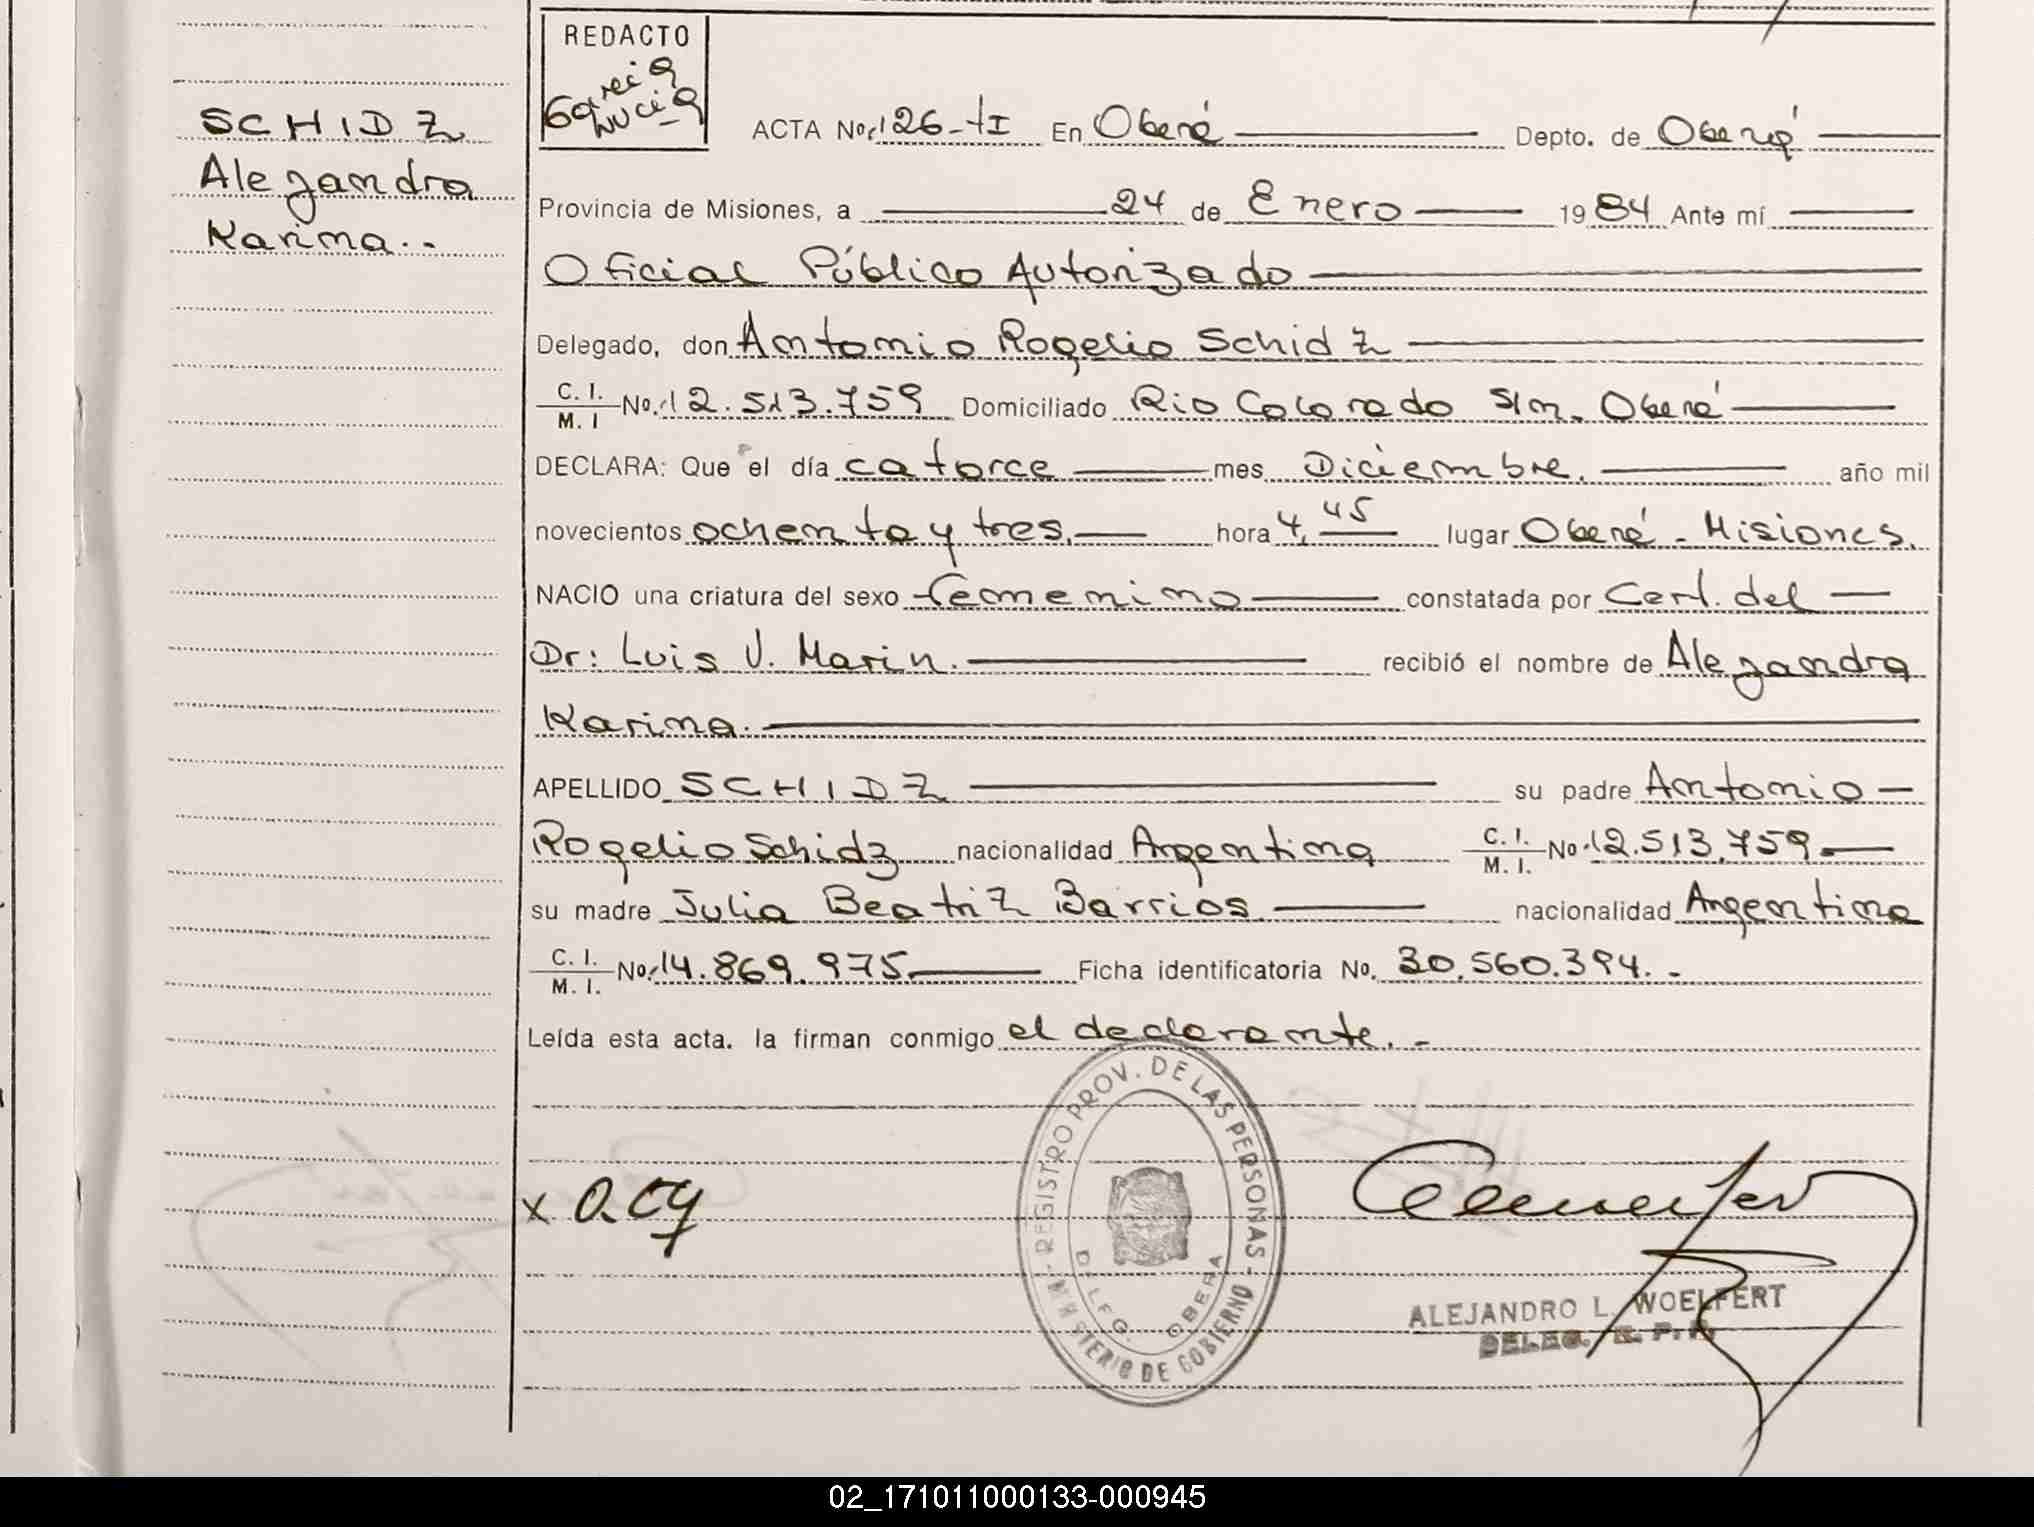 SCHIDZ
Alejandra
Karina.-
REDACTO
García
ACTA No. 126-tI En Oberá Depto. de Oberá
Provincia de Misiones, a 24 de Enero 1984 Ante mí
Oficial Público Autorizado
Delegado, don Antonio Rogelio Schidz
C. I. / M. I No. 12.513.759 Domiciliado Rio Colorado S/n. Oberá
DECLARA: Que el día catorce mes Diciembre. año mil
novecientos ochenta y tres. hora 4,45 lugar Oberá - Misiones.
NACIO una criatura del sexo femenino constatada por Cert. del
Dr: Luis V. Marin. recibió el nombre de Alejandra
Karina.
APELLIDO SCHIDZ su padre Antonio
Rogelio Schidz nacionalidad Argentina C. I. / M. I. No. 12.513.759.
su madre Julia Beatriz Barrios nacionalidad Argentina
C. I. / M. I. No. 14.869.975 Ficha identificatoria No. 30.560.394.-
Leída esta acta. la firman conmigo el declarante.-
REGISTRO PROV. DE LAS PERSONAS - MINISTERIO DE GOBIERNO -
DELEG. OBERA
x
ALEJANDRO L. WOELFERT
DELEG. R. P. P.
02_171011000133-000945